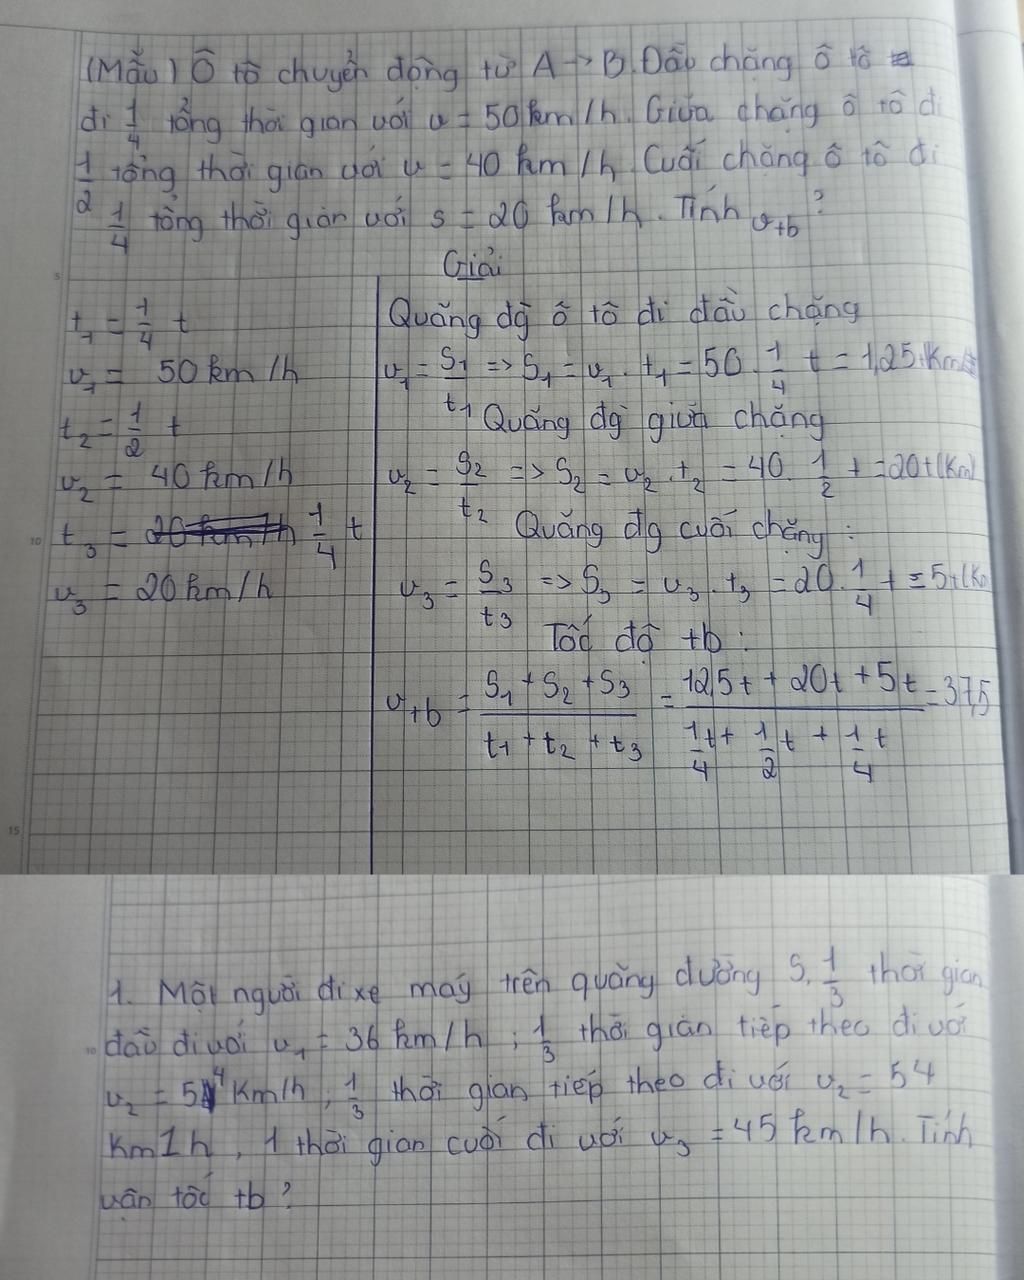 (Mẫu) Ô tô chuyển động từ A → B. Đầu chặng ô tô
đi 1/4 tổng thời gian với v = 50 km/h. Giữa chặng ô tô đi
1/2 tổng thời gian với v = 40 km/h. Cuối chặng ô tô đi
1/4 tổng thời gian với s = 20 km/h. Tính v_tb?
Giải
t₁ = 1/4 t
v₁ = 50 km/h
t₂ = 1/2 t
v₂ = 40 km/h
t₃ = 1/4 t
v₃ = 20 km/h
Quãng đg ô tô đi đầu chặng
v₁ = S₁/t₁ => S₁ = v₁ . t₁ = 50 . 1/4 t = 1,25t Km
Quãng đg giữa chặng
v₂ = S₂/t₂ => S₂ = v₂ . t₂ = 40 . 1/2 t = 20t (Km)
Quãng đg cuối chặng :
v₃ = S₃/t₃ => S₃ = v₃ . t₃ = 20 . 1/4 t = 5t (K
Tốc độ tb :
v_tb = (S₁ + S₂ + S₃)/(t₁ + t₂ + t₃) = (12,5t + 20t + 5t)/(1/4 t + 1/2 t + 1/4 t) = 37,5
1. Một người đi xe máy trên quãng đường S, 1/3 thời gian
đầu đi với v₁ = 36 km/h ; 1/3 thời gian tiếp theo đi với
v₂ = 54 Km/h ; 1/3 thời gian tiếp theo đi với v₂ = 54
Km1h, 1 thời gian cuối đi với v₃ = 45 km/h. Tính
vận tốc tb ?
5
10
15
10